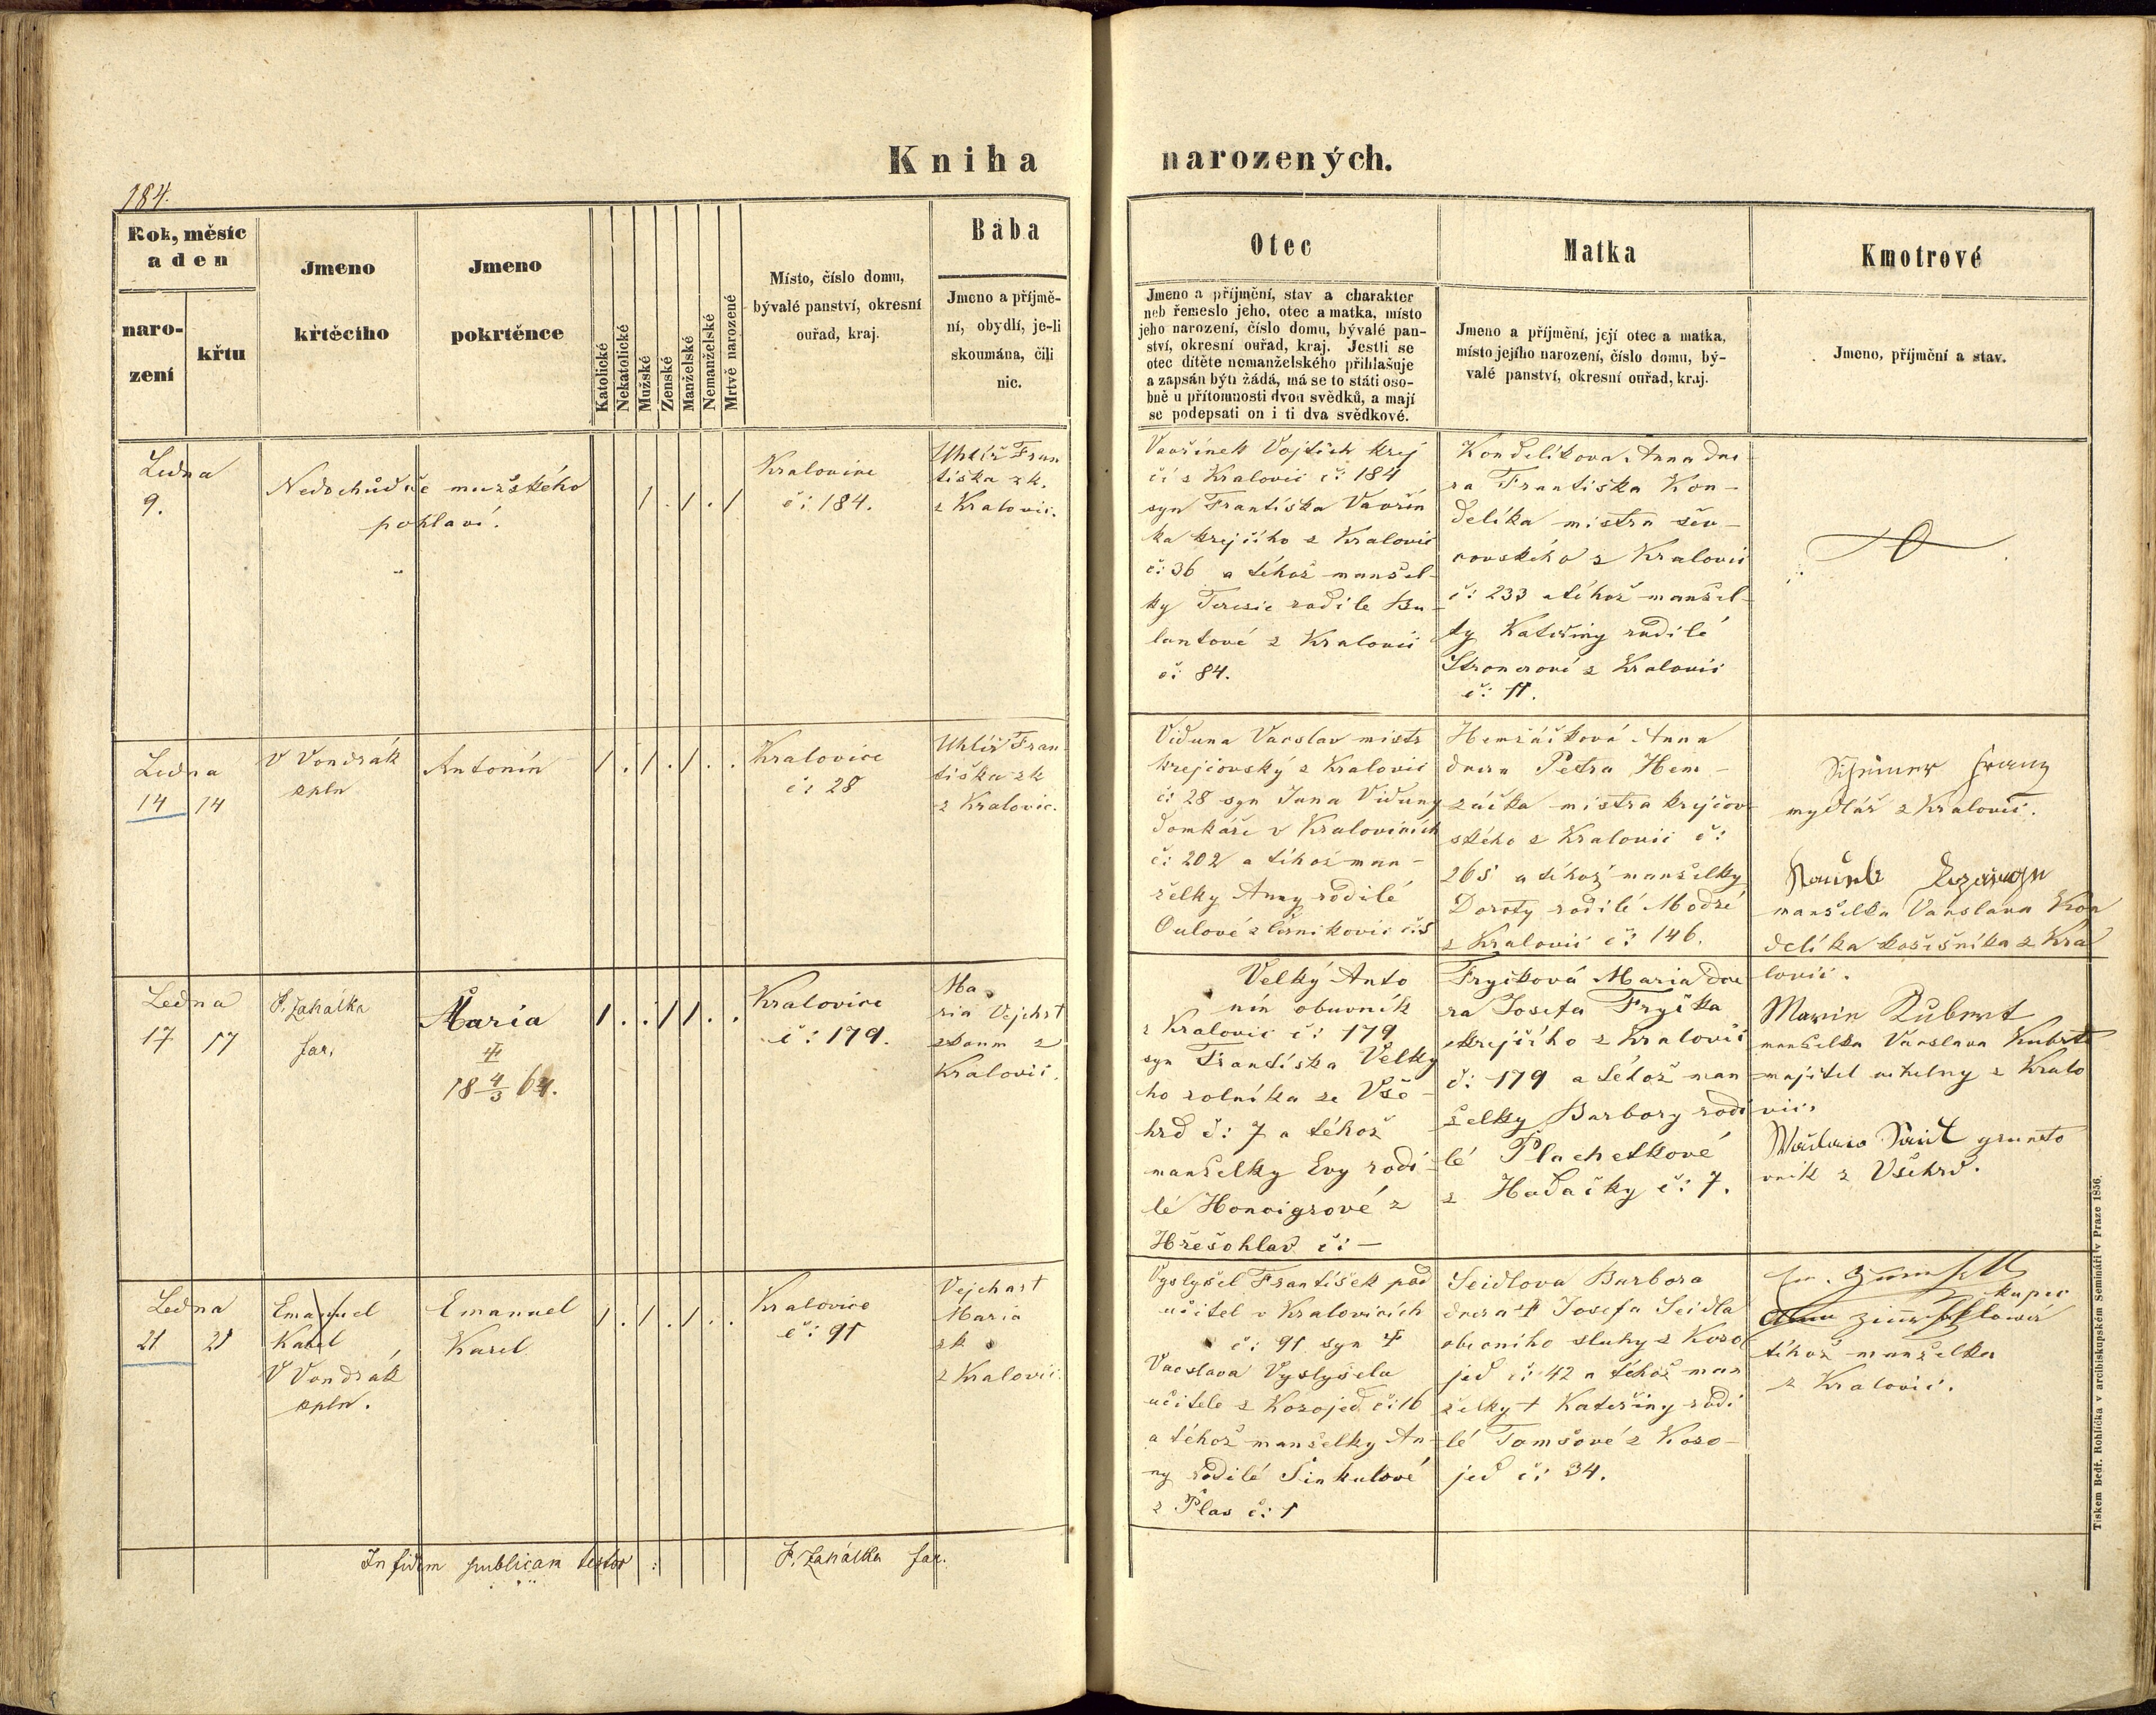 Kniha narozených.
184.
Rok, měsíc
a den
naro-
zení
křtu
Jmeno
křtěcího
Jmeno
pokrtěnce
Katolické
Nekatolické
Mužské
Ženské
Manželské
Nemanželské
Mrtvě narozené
Místo, číslo domu,
bývalé panství, okresní
ouřad, kraj.
Bába
Jmeno a příjmě-
ní, obydlí, je-li
skoumána, čili
nic.
Otec
Jmeno a příjmění, stav a charakter
neb řemeslo jeho, otec a matka, místo
jeho narození, číslo domu, bývalé pan-
ství, okresní ouřad, kraj. Jestli se
otec dítěte nemanželského přihlašuje
a zapsán býti žádá, má se to státi oso-
bně u přítomnosti dvou svědků, a mají
se podepsati on i ti dva svědkové.
Matka
Jmeno a příjmění, její otec a matka,
místo jejího narození, číslo domu, bý-
valé panství, okresní ouřad, kraj.
Kmotrové
Jmeno, příjmění a stav.
Ledna
9.
Nedochůdče mužského
pohlaví.
1 . 1 . 1
Kralovice
č: 184.
Uhlíř Fran
tiška zk.
z Kralovic.
Vavřinek Vojtěch krej
čí z Kralovic č: 184
syn Františka Vavřín
ka krejčího z Kralovic
č: 36 a téhož manžel-
ky Teresie rodilé Bu-
lantové z Kralovic
č: 84.
Kondelíkova Anna dce
ra Františka Kon-
delíka mistra šev-
covského z Kralovic
č: 233 a téhož manžel-
ky Kateřiny rodilé
z Kralovic
č: 11.
Ledna
14 14
V Vondrák
kpln
Antonín
1 . 1 . 1 . .
Kralovice
č: 28
Uhlíř Fran
tiška zk
z Kralovic.
Viduna Vacslav mistr
krejčovský z Kralovic
č: 28 syn Jana Viduny
domkáře v Kralovicích
č: 202 a téhož man-
želky Anny rodilé
Oulové z č: 5
Hemžáčková Anna
dcera Petra Hem-
žáčka mistra krejčov
ského z Kralovic č:
265 a téhož manželky
Doroty rodilé Modré
z Kralovic č: 146.
Franz
mydlář z Kralovic.
manželka Vacslava Kon
delíka košišníka z Kra
lovic.
Ledna
17 17
F. Zahálka
far.
Maria
‡
18 4/3 64.
1 . . 1 1 . .
Kralovice
č: 179.
Ma
ria Vejchrt
zkoum z
Kralovic.
Velký Anto
nín obuvník
z Kralovic č: 179
syn Františka Velký
ho rolníka ze Vše-
hrd č: 7 a téhož
manželky Evy rodi-
lé Honvigrové z
Hřešohlav č: —
Fryčková Maria dce
ra Josefa Fryčka
krejčího z Kralovic
č: 179 a téhož man
želky Barbory rodi
lé Plachetkové
z Hadačky č: 7.
Marie Kubert
manželka Vacslava Kubrta
majitel cihelny z Kralo
vic.
grunto
vník z Všehrd.
Ledna
21 21
Emanuel
Karel
V Vondrák
kpln.
Emanuel
Karel
1 . 1 . 1 . .
Kralovice
č: 91
Vejchart
Maria
zk
z Kralovic.
Vyslyšel František pod
učitel v Kralovicích
č: 91 syn ‡
Vacslava Vyslyšela
učitele z Kozojed č: 16
a téhož manželky An-
ny rodilé Šinkulové
z Plas č: 1
Seidlova Barbora
dcera ‡ Josefa Seidla
obecního sluhy z Kozo
jed č: 42 a téhož man
želky + Kateřiny rodi
lé Tomšové z Kozo-
jed č: 34.
kupec
téhož manželka
z Kralovic.
In fidem publicam testor : F. Zahálka far.
Tiskem Bedř. Rohlíčka v arcibiskupském Semináři v Praze 1856.